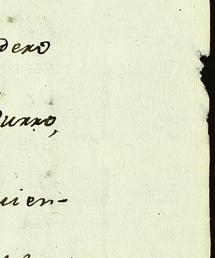 dero
urro,
uien-